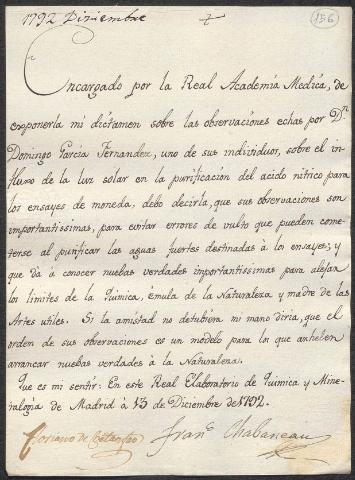 1792 Diziembre
156
Encargado por la Real Academia Medica, de
exponerla mi dictamen sobre las observaciones echas por Dn
Domingo Garcia Fernandez, uno de sus individuos, sobre el in
fluxo de la luz sólar en la purificación del acido nitrico para
los ensayes de moneda, debo decirla, que sus observaciones son
importantissimas, para evitar errores de vulto que pueden come-
terse al purificar las aguas fuertes destinadas à los ensayes; y
que dà à conocer nuebas verdades importantissimas para alejar
los limites de la Quimica, émula de la Naturaleza y madre de las
Artes utiles. Si la amistad no detubiera mi mano diria, que el
orden de sus observaciones es un modelo para lo que anhelen
arrancar nuebas verdades à la Naturaleza.
Que es mi sentir. En este Real Elaboratorio de Quimica y Mine-
ralogia de Madrid à 13 de Diciembre de 1792.
Franco Chabaneau